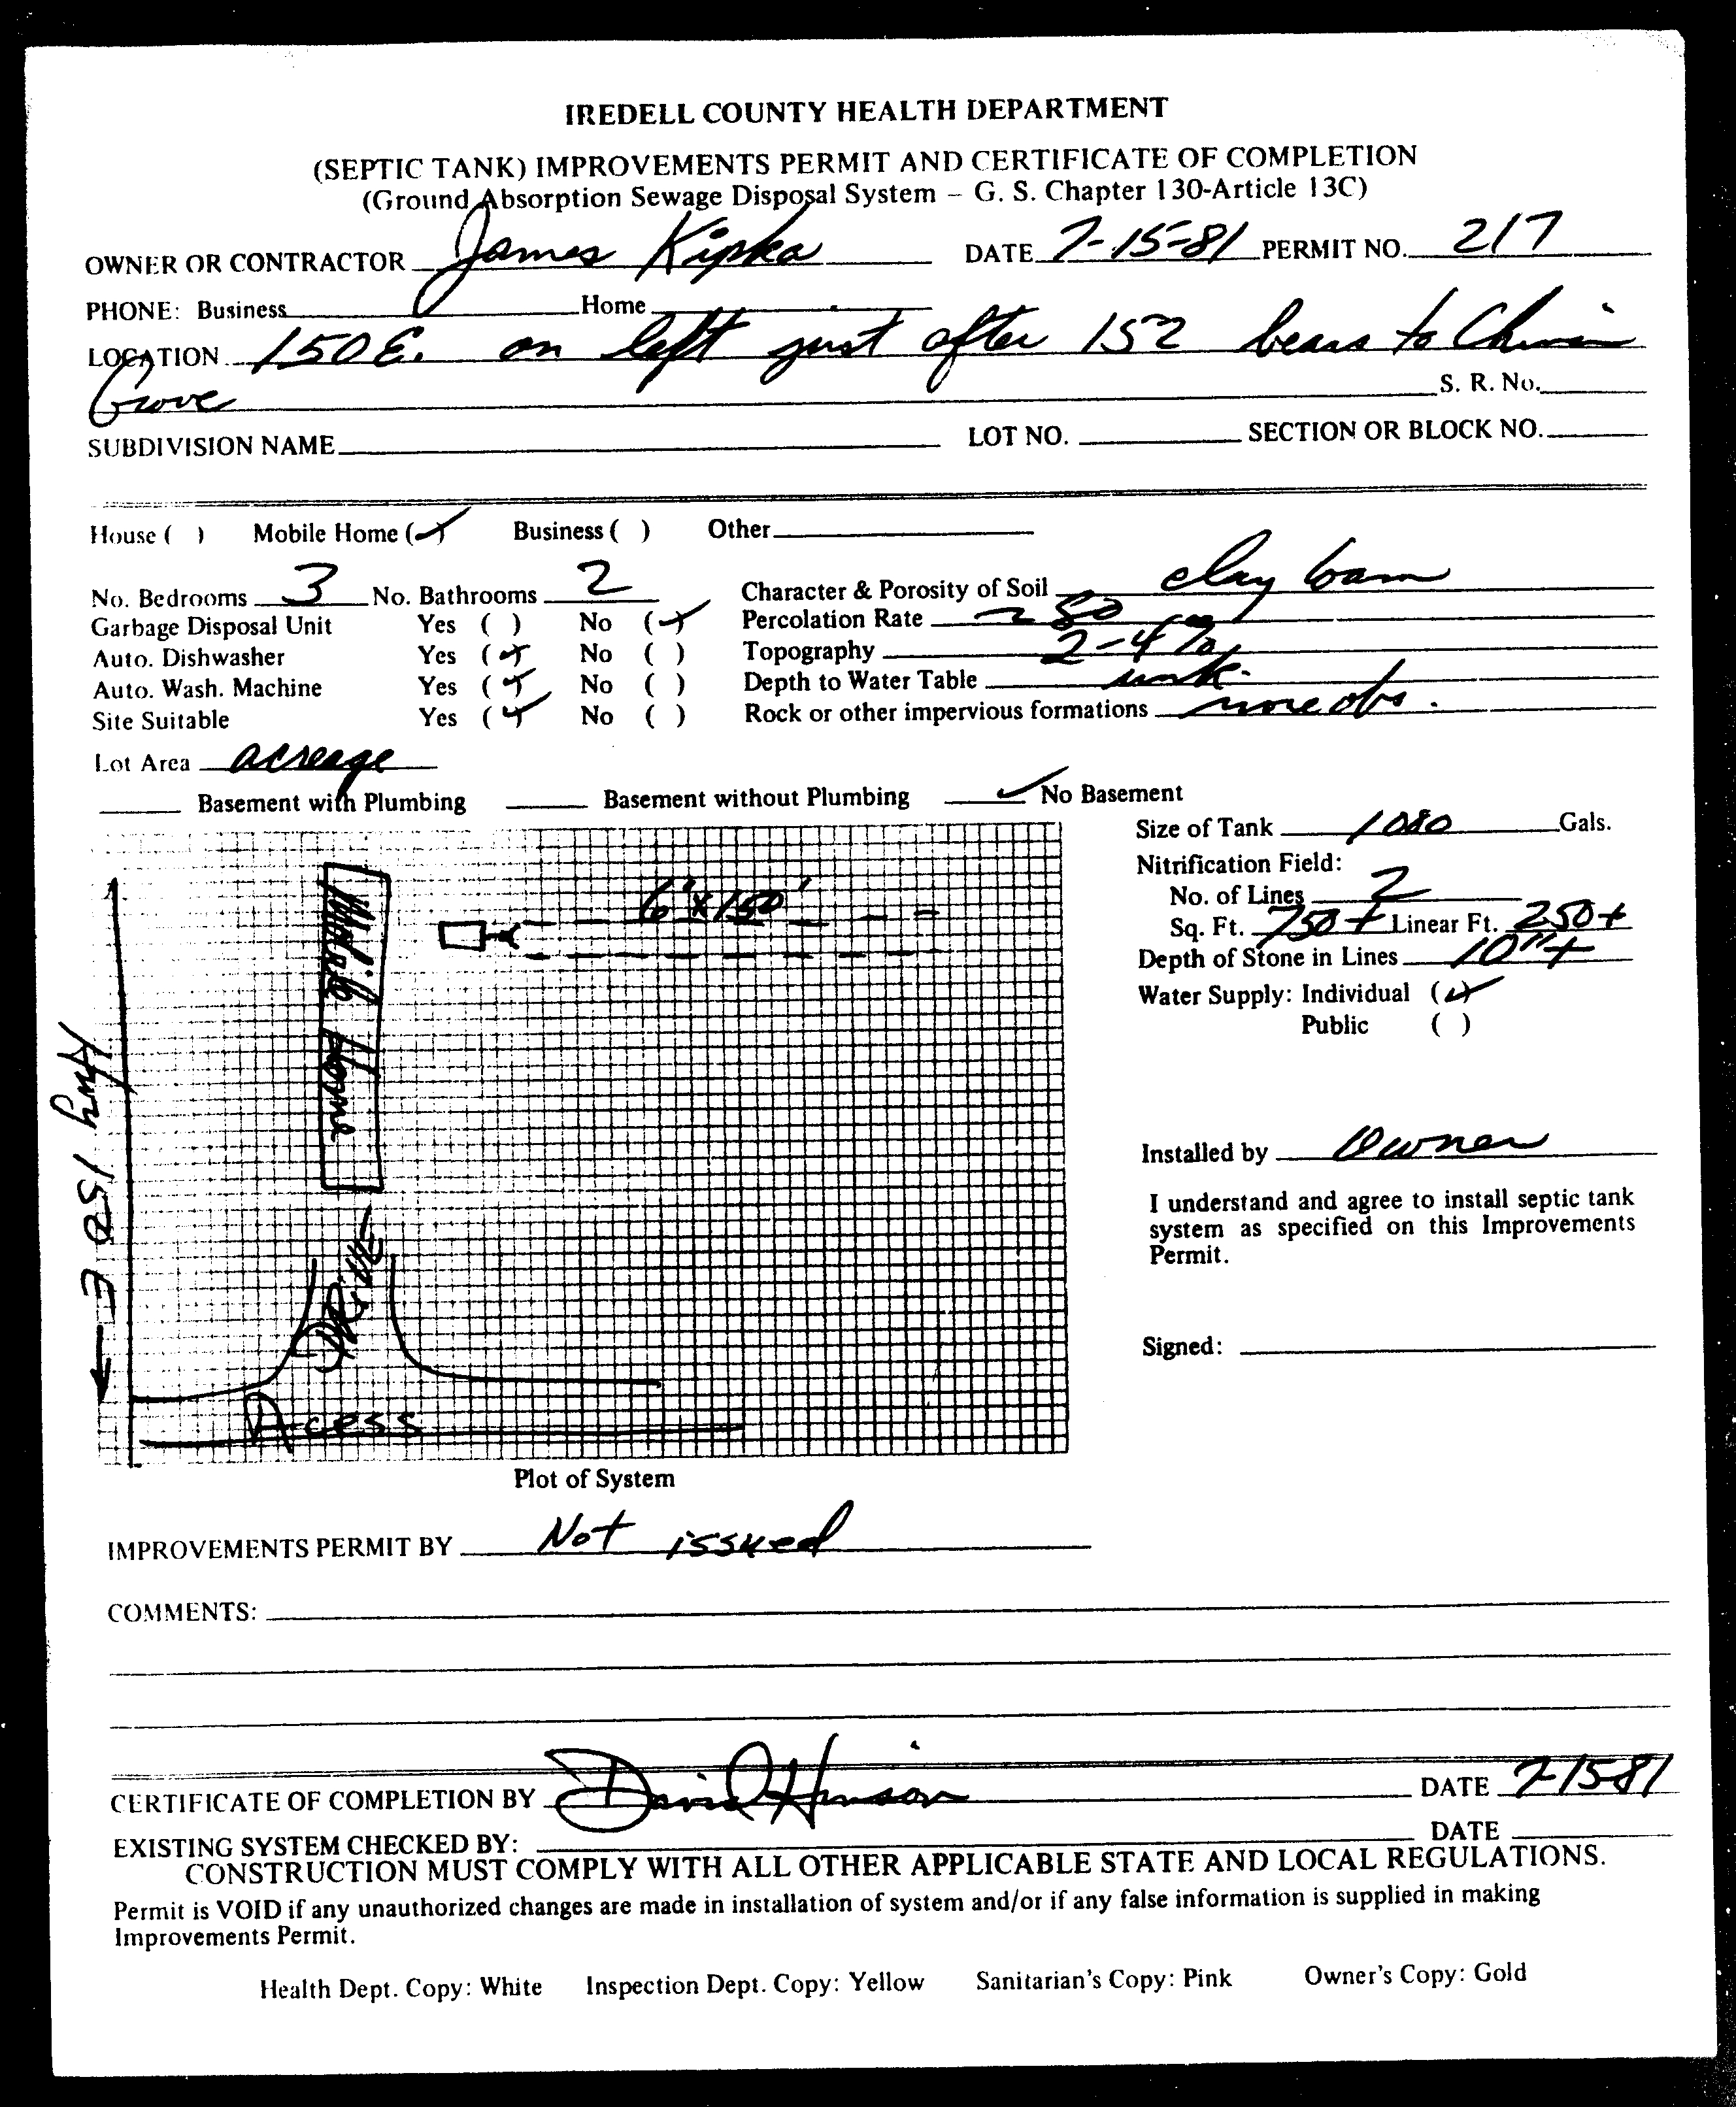 IREDELL COUNTY HEALTH DEPARTMENT
(SEPTIC TANK) IMPROVEMENTS PERMIT AND CERTIFICATE OF COMPLETION
(Ground Absorption Sewage Disposal System – G. S. Chapter 130-Article 13C)
OWNER OR CONTRACTOR James Kipka DATE 7-15-81 PERMIT NO. 217
PHONE: Business Home
LOCATION 150 E. on left just after 152 bears to China
Grove S. R. No.
SUBDIVISION NAME LOT NO. SECTION OR BLOCK NO.
House ( ) Mobile Home (✓) Business ( ) Other
No. Bedrooms 3 No. Bathrooms 2 Character & Porosity of Soil clay loam
Garbage Disposal Unit Yes ( ) No (✓) Percolation Rate 80
Auto. Dishwasher Yes (✓) No ( ) Topography 2-4%
Auto. Wash. Machine Yes (✓) No ( ) Depth to Water Table unk.
Site Suitable Yes (✓) No ( ) Rock or other impervious formations none obs.
Lot Area acreage
Basement with Plumbing Basement without Plumbing ✓ No Basement
Size of Tank 1080 Gals.
Nitrification Field:
No. of Lines 2
Sq. Ft. 750+ Linear Ft. 250+
Depth of Stone in Lines 10"+
Water Supply: Individual (✓)
Public ( )
6'x150'
Mobile Home
Hwy 152 E
Drive
Acess
Installed by Owner
I understand and agree to install septic tank
system as specified on this Improvements
Permit.
Signed:
Plot of System
IMPROVEMENTS PERMIT BY Not issued
COMMENTS:
CERTIFICATE OF COMPLETION BY David Hinson DATE 7-1581
EXISTING SYSTEM CHECKED BY: DATE
CONSTRUCTION MUST COMPLY WITH ALL OTHER APPLICABLE STATE AND LOCAL REGULATIONS.
Permit is VOID if any unauthorized changes are made in installation of system and/or if any false information is supplied in making
Improvements Permit.
Health Dept. Copy: White Inspection Dept. Copy: Yellow Sanitarian's Copy: Pink Owner's Copy: Gold